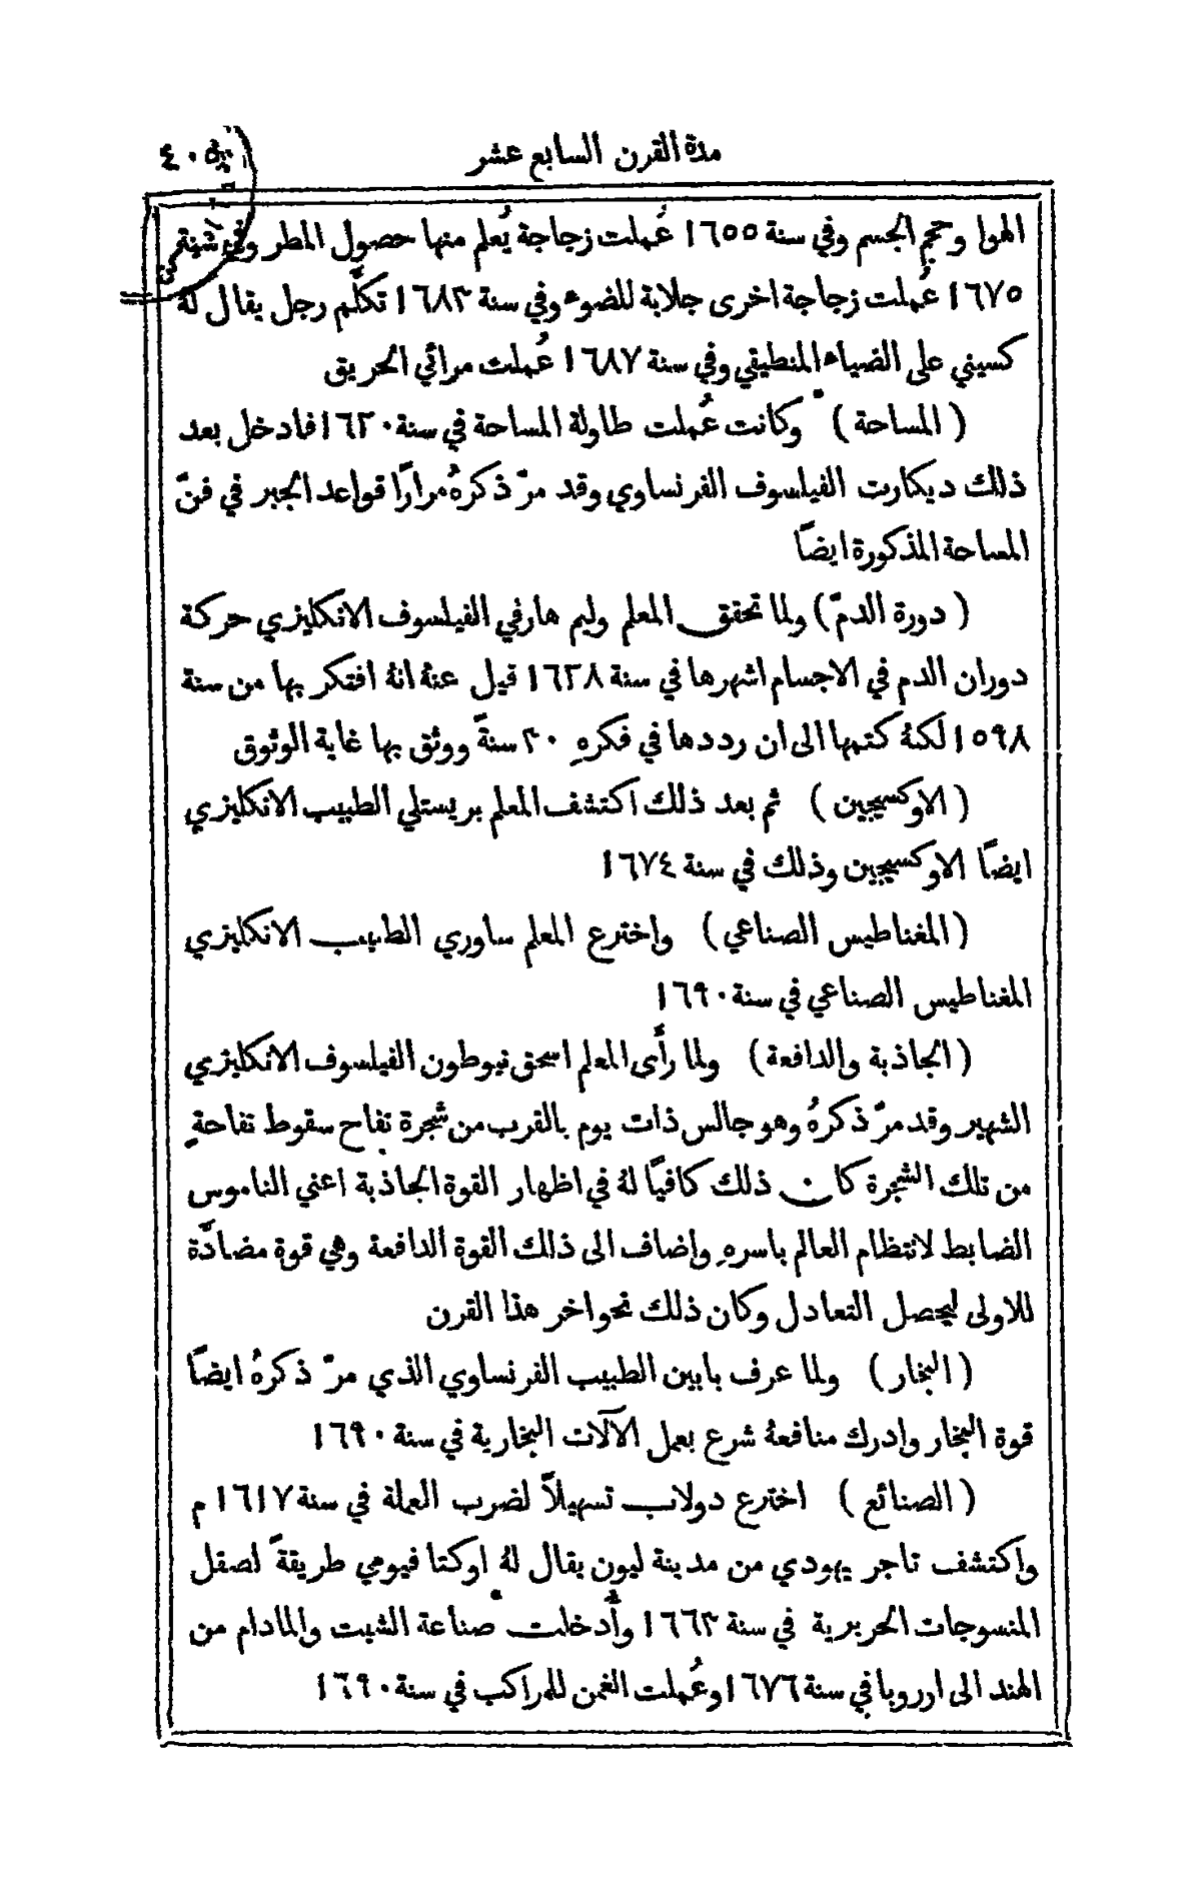 مدة القرن السابع عشر
الهوا وحجم الجسم وفي سنة ١٦٥٥ عُملت زجاجة يُعلم منها حصول المطر وفي سنة
١٦٧٥ عُملت زجاجة اخرى جلابة للضوء وفي سنة ١٦٨٣ تكلَّم رجل يقال لهُ
كسيني على الضياء المنطيقي وفي سنة ١٦٨٧ عُملت مرائي الحريق
( المساحة ) وكانت عُملت طاولة المساحة في سنة ١٦٣٠ فادخل بعد
ذلك ديكارت الفيلسوف الفرنساوي وقد مرّ ذكرهُ مرارًا قواعد الجبر في فنّ
المساحة المذكورة ايضاً
( دورة الدمّ ) ولما تحقق المعلم وليم هارفي الفيلسوف الانكليزي حركة
دوران الدم في الاجسام اشهرها في سنة ١٦٢٨ قيل عنهُ انهُ افتكر بها من سنة
١٥٩٨ لكنهُ كتمها الى ان رددها في فكرهِ ٣٠ سنةً ووثق بها غاية الوثوق
( الاوكسيجين ) ثم بعد ذلك اكتشف المعلم بريستلي الطبيب الانكليزي
ايضاً الاوكسيجين وذلك في سنة ١٦٧٤
( المغناطيس الصناعي ) واخترع المعلم ساوري الطبيب الانكليزي
المغناطيس الصناعي في سنة ١٦٩٠
( الجاذبة والدافعة ) ولما رأَى المعلم اسحق نيوطون الفيلسوف الانكليزي
الشهير وقد مرّ ذكرهُ وهو جالس ذات يوم بالقرب من شجرة تفاح سقوط تفاحةٍ
من تلك الشجرة كان ذلك كافيًا لهُ في اظهار القوة الجاذبة اعني الناموس
الضابط لانتظام العالم باسرهِ واضاف الى ذلك القوة الدافعة وهي قوة مضادَّة
للاولى ليحصل التعادل وكان ذلك نحو اخر هذا القرن
( البخار ) ولما عرف بابين الطبيب الفرنساوي الذي مرّ ذكرهُ ايضاً
قوة البخار وادرك منافعهُ شرع بعمل الآلات البخارية في سنة ١٦٩٠
( الصنائع ) اخترع دولاب تسهيلاً لضرب العملة في سنة ١٦١٧ م
واكتشف تاجر يهودي من مدينة ليون يقال لهُ اوكتا فيومي طريقةً لصقل
المنسوجات الحريرية في سنة ١٦٦٣ وأُدخلت صناعة الشيت والمادام من
الهند الى اوروبا في سنة ١٦٧٦ وعُملت الغمن للمراكب في سنة ١٦٩٠